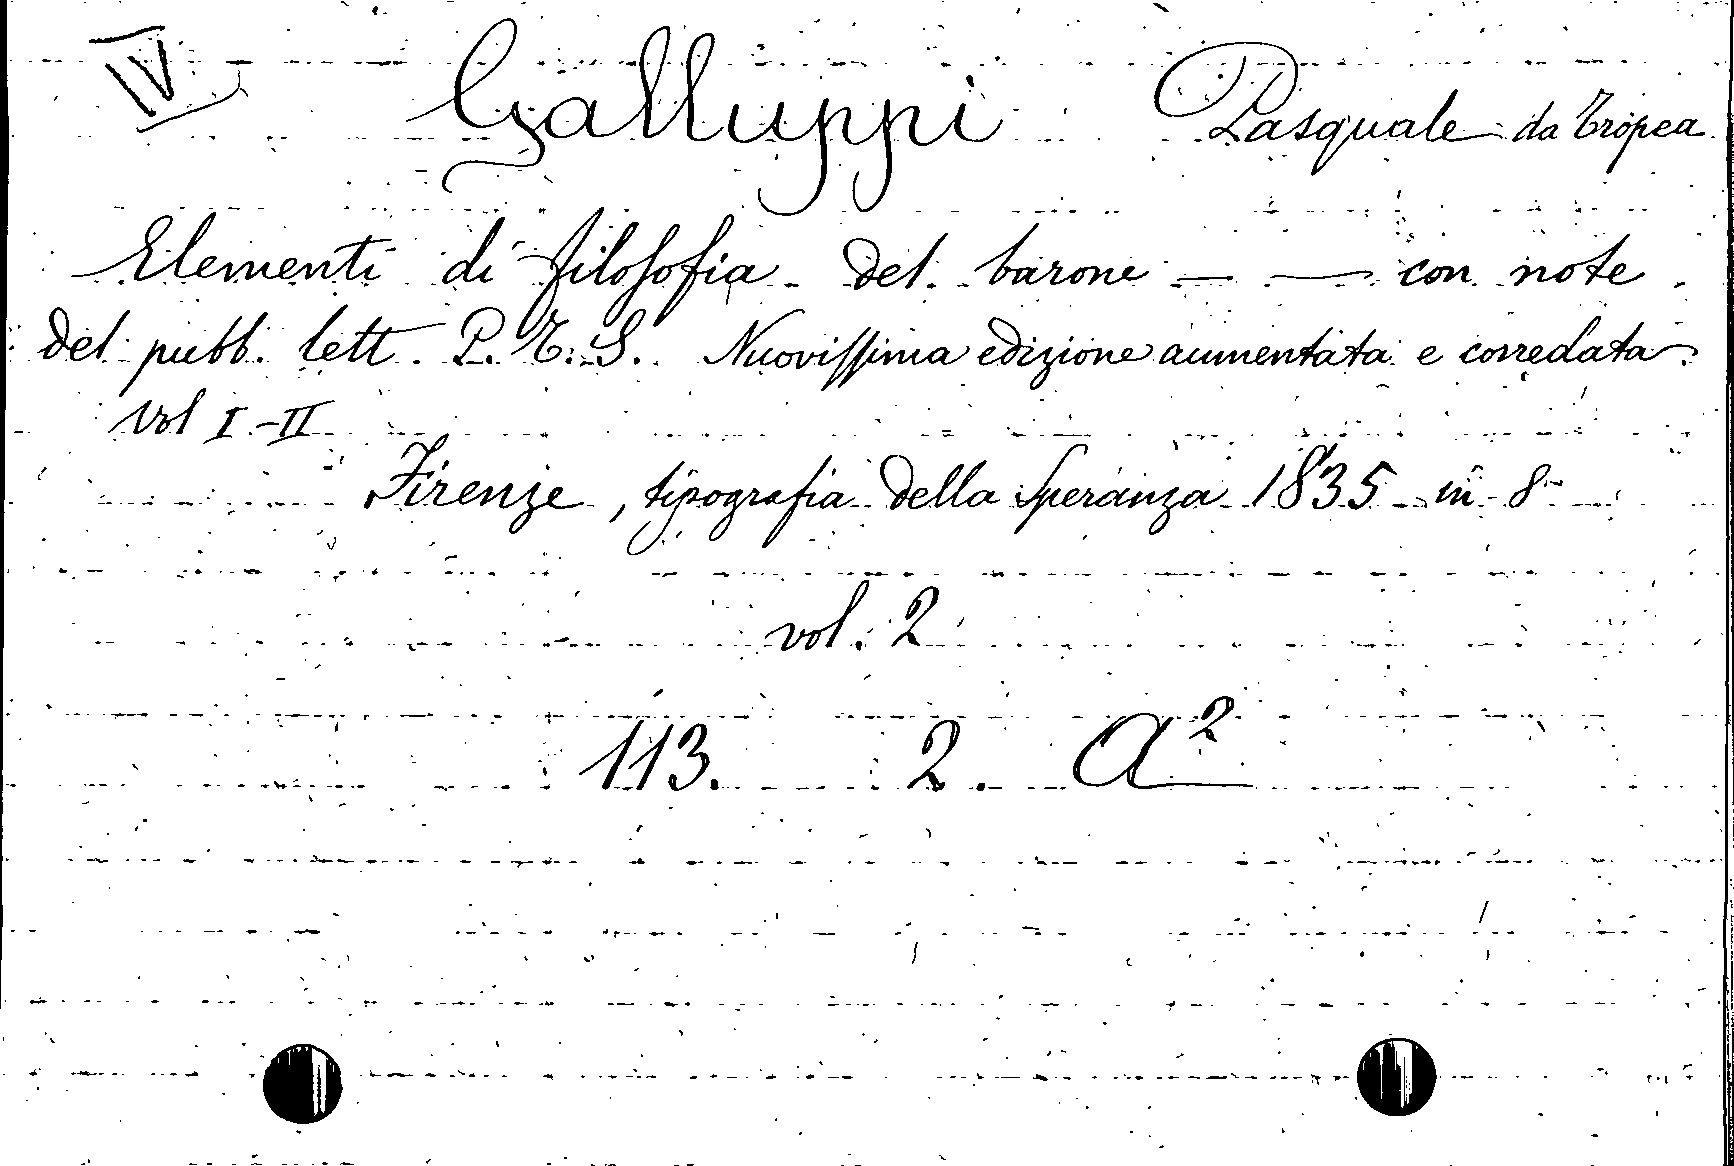 IV Galluppi Pasquale da Tropea
Elementi di filosofia del barone — — con note
del pubb. lett. P. T. S. Nuovissima edizione aumentata e corredata
Vol I-II
Firenze, tipografia della Speranza 1835 in 8
vol. 2
113. 2. A²